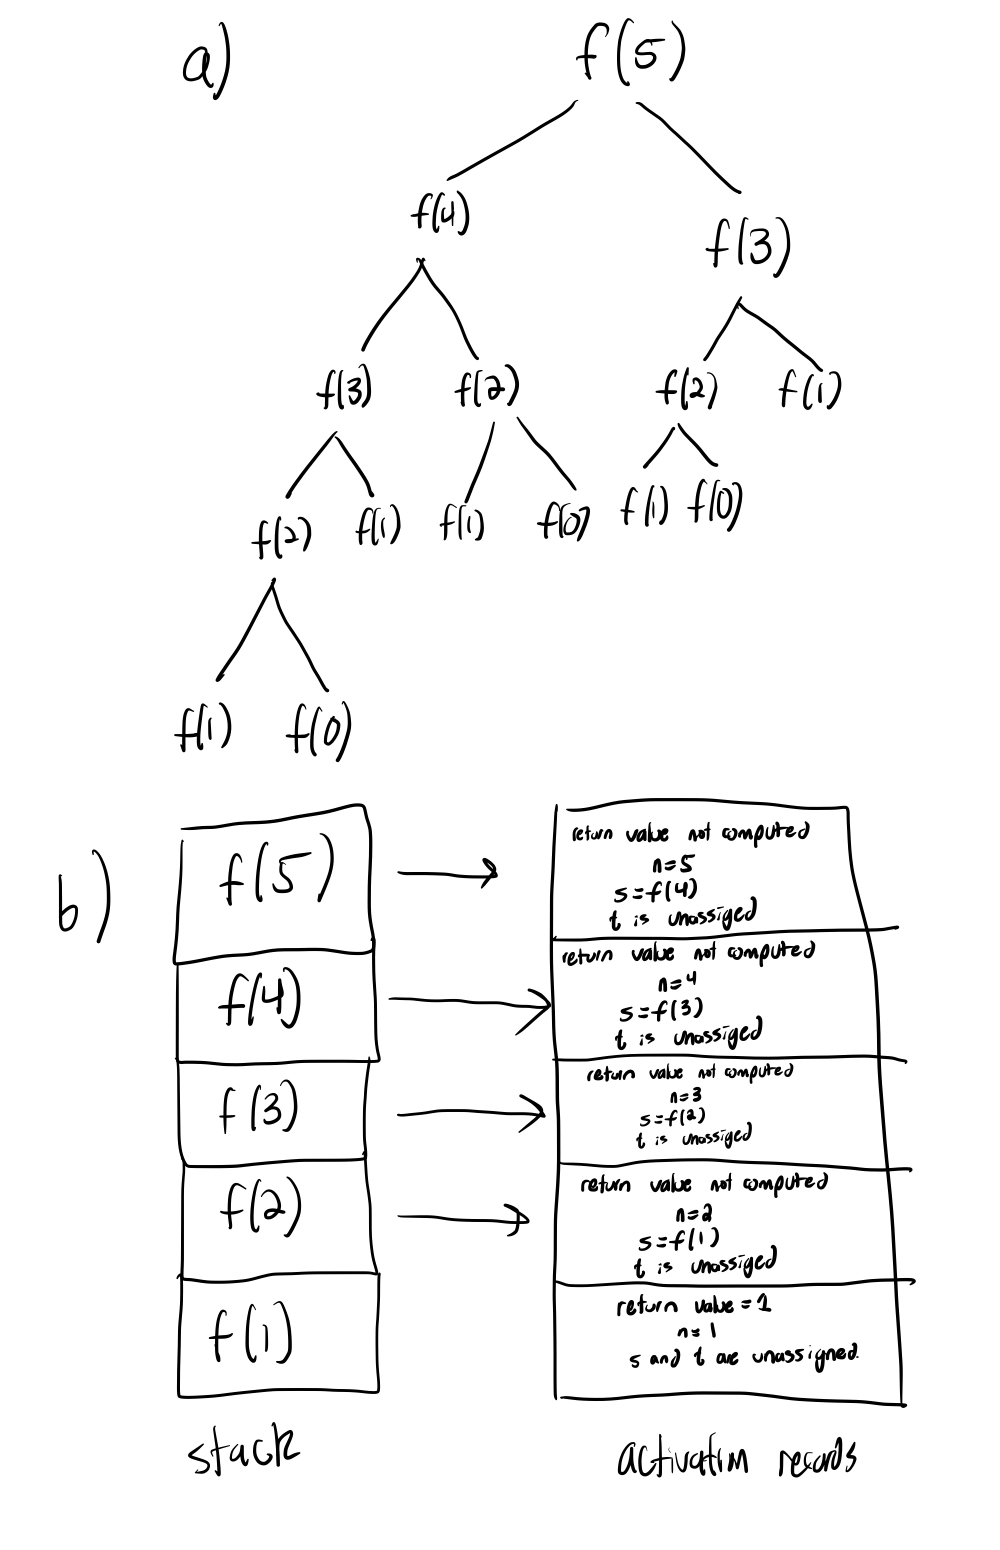 a)
f(5)
f(4)
f(3)
f(3) f(2) f(2) f(1)
f(2) f(1) f(1) f(0) f(1) f(0)
f(1) f(0)
b)
f(5)
return value not computed
n=5
s=f(4)
t is unassiged
f(4)
return value not computed
n=4
s=f(3)
t is unassiged
f(3)
return value not computed
n=3
s=f(2)
t is unassiged
f(2)
return value not computed
n=2
s=f(1)
t is unassiged
f(1)
return value = 1
n=1
s and t are unassigned.
stack
activation records